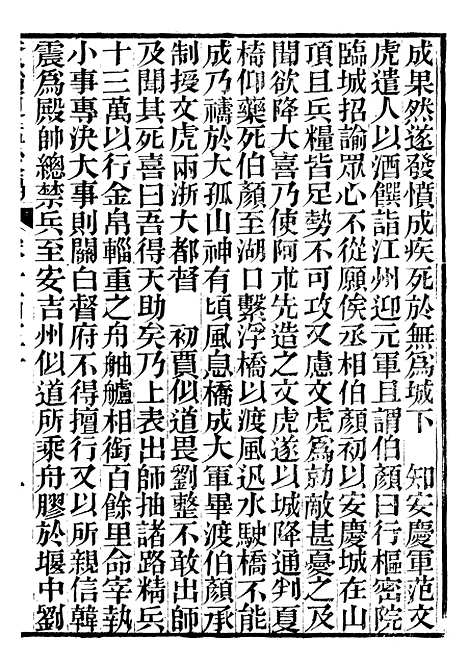 成果然遂發憤成疾死於無爲城下　知安慶軍范文
虎遣人以酒饌詣江州迎元軍且謂伯顏曰行樞密院
臨城招諭眾心不從願俟丞相伯顏初以安慶城在山
頂且兵糧皆足勢不可攻又慮文虎爲勍敵甚憂之及
聞欲降大喜乃使阿朮先造之文虎遂以城降通判夏
椅仰藥死伯顏至湖口繫浮橋以渡風迅水駛橋不能
成乃禱於大孤山神有頃風息橋成大軍畢渡伯顏承
制授文虎兩浙大都督　初賈似道畏劉整不敢出師
及聞其死喜曰吾得天助矣乃上表出師抽諸路精兵
十三萬以行金帛輜重之舟舳艫相銜百餘里命宰執
小事專決大事則關白督府不得擅行又以所親信韓
震爲殿帥總禁兵至安吉州似道所乘舟膠於堰中劉